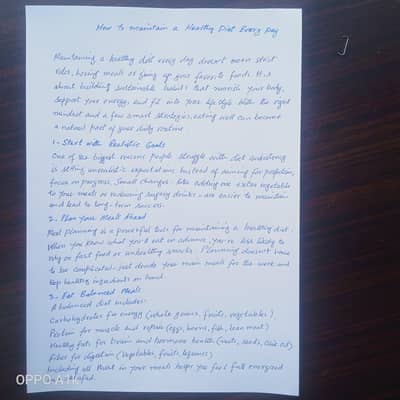 How to maintain a Healthy Diet Every Day
Maintaining a healthy diet every day doesn't mean strict
rules, boring meals or giving up your favorite foods. It's
about building sustainable habits that nourish your body,
support your energy, and fit into your lifestyle. With the right
mindset and a few smart strategies, eating well can become
a natural part of your daily routine
1 - Start with Realistic Goals
One of the biggest reasons people struggle with diet
is setting unrealistic expectations. Instead of aiming for perfection,
focus on progress. Small changes - like adding one extra vegetable
to your meals or reducing sugary drinks - are easier to maintain
and lead to long-term success.
2. Plan Your Meals Ahead
Meal planning is a powerful tool for maintaining a healthy diet.
When you know what you'll eat in advance, you're less likely to
rely on fast food or unhealthy snacks. Planning doesn't have
to be complicated - just decide your main meals for the week and
keep healthy ingredients on hand.
3 - Eat Balanced Meals
A balanced diet includes:
Carbohydrates for energy (whole grains, fruits, vegetables)
Protein for muscle and repair (eggs, beans, fish, lean meat)
Healthy fats for brain and hormone health (nuts, seeds, olive oil)
Fiber for digestion (vegetables, fruits, legumes)
Including all these in your meals helps you feel full energized
OPPO A1k